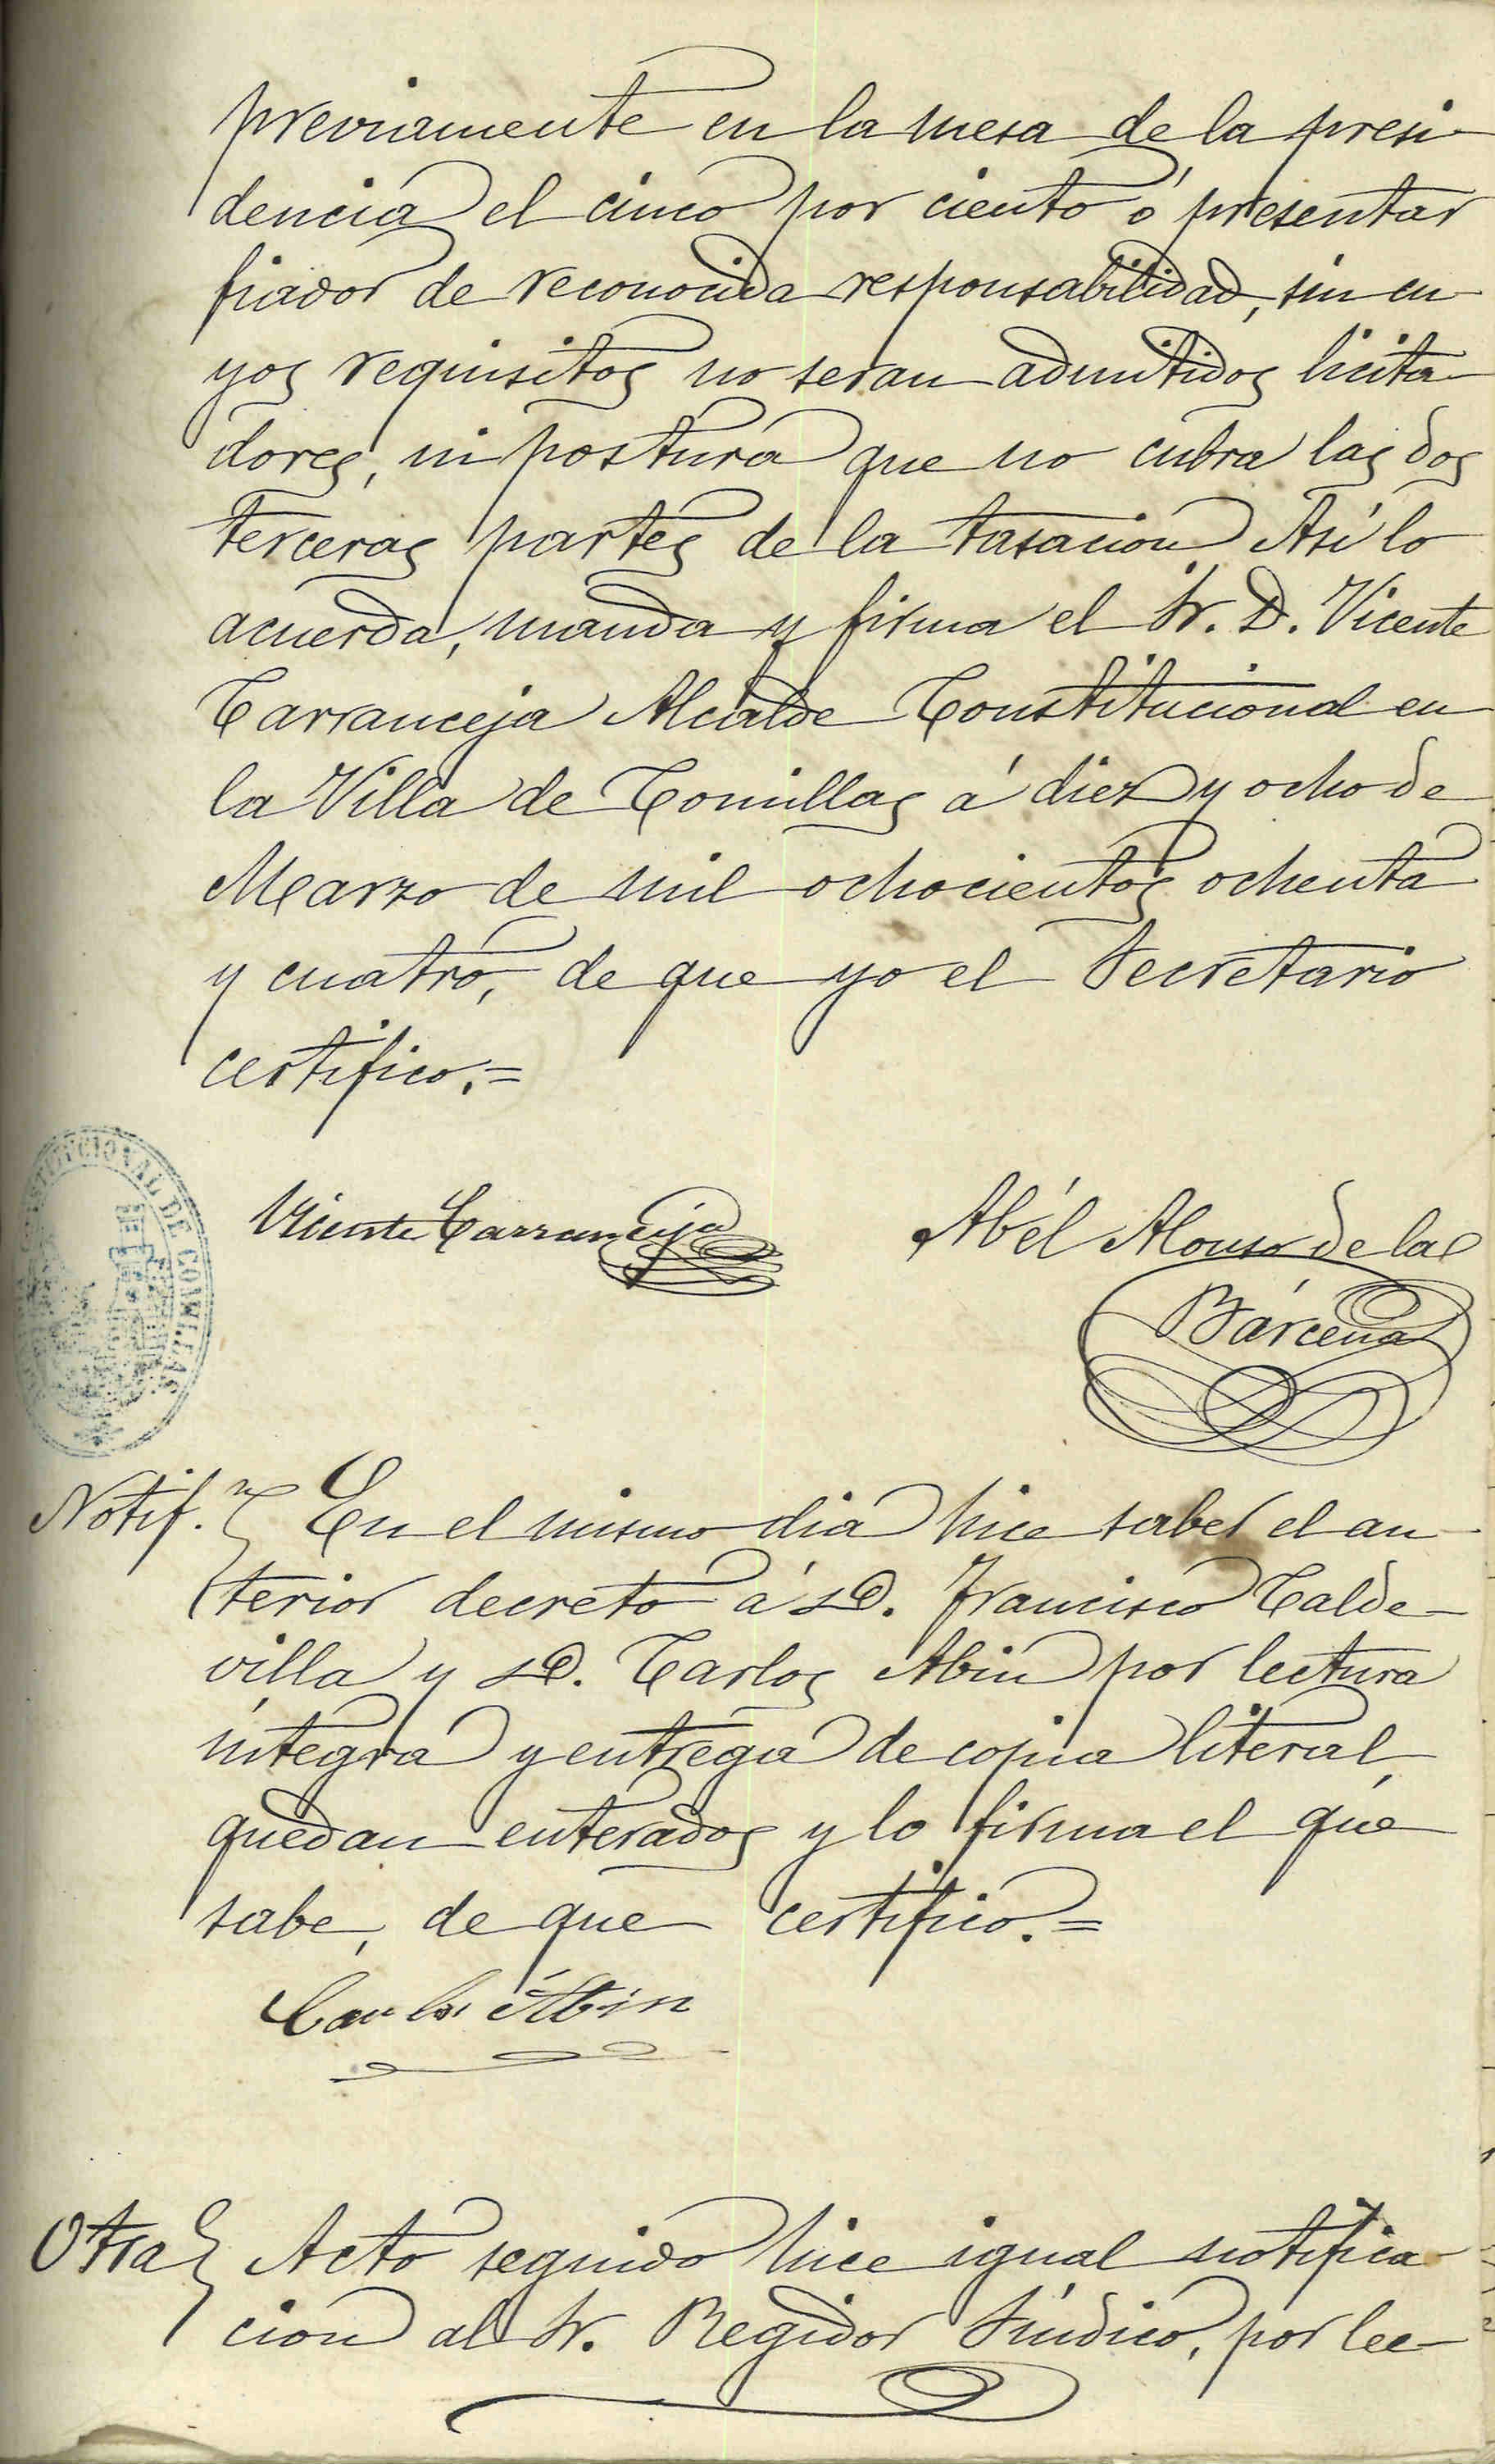 previamente en la mesa de la presi-
dencia el cinco por ciento ó presentar
fiador de reconocida responsabilidad, sin cu-
yos requisitos no seran admitidos licita-
dores, ni postura que no cubra las dos
terceras partes de la tasacion Así lo
acuerda, manda y firma el Sr. D. Vicente
Carranceja Alcalde Constitucional en
la Villa de Comillas á diez y ocho de
Marzo de mil ochocientos ochenta
y cuatro, de que yo el Secretario
certifico.=
CONSTITUCIONAL DE COMILLAS
Vicente Carranceja
Abél Alonso de la
Bárcena
Notif.n En el mismo dia hice saber el an-
terior decreto á D. Francisco Calde-
villa y D. Carlos Abin por lectura
íntegra y entrega de copia literal,
quedan enterados y lo firma el que
sabe, de que certifico.=
Carlos Abin
Otra Acto seguido hice igual notifica-
cion al Sr. Regidor Síndico, por lec-